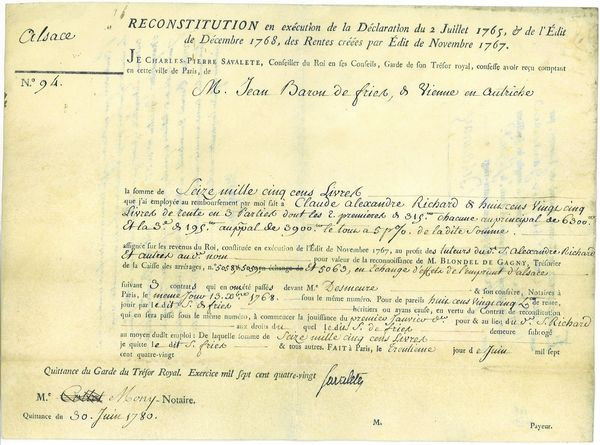 Alsace
RECONSTITUTION en exécution de la Déclaration du 2 Juillet 1765, & de l'Édit
de Décembre 1768, des Rentes créées par Édit de Novembre 1767.
N.o 94.
JE CHARLES-PIERRE SAVALETE, Conseiller du Roi en ses Conseils, Garde de son Trésor royal, confesse avoir reçu comptant
en cette ville de Paris, de
M. Jean Baron de fries, de Vienne en Autriche
la somme de Seize mille cinq cens Livres
que j'ai employée au remboursement par moi fait à Claude Alexandre Richard de huit cens Vingt cinq
Livres de rente en 3 Parties dont les 2 premieres de 315 chacune au principal de 6300
Et la 3.e de 195 au ppal de 3900 le tout a 5 p% de la dite Somme.
assignée sur les revenus du Roi, constituée en exécution de l'Édit de Novembre 1767, au profit des tuteurs du S. Alexandre Richard
Et autres au d. nom pour valeur de la reconnoissance de M. BLONDEL DE GAGNY, Trésorier
de la Caisse des arrérages, n.o 5058 Et 5063, en Echange d'effets de l'emprunt d'alsace
suivant 3 contrats qui en ont été passés devant M.e Desmeure & son confrere, Notaires à
Paris, le meme Jour 13 1768. sous le même numéro. Pour de pareils huit cens Vingt cinq de rente,
jouir par le dit S. de fries héritiers ou ayans cause, en vertu du Contrat de reconstitution
qui en sera passé sous le même numéro, à commencer la jouissance du premier Janvier & au lieu du S. Richard
aux droits duquel le dit S. de fries demeure subrogé
au moyen dudit emploi: De laquelle somme de Seize mille cinq cens Livres
je quitte le dit S. fries & tous autres. FAIT à Paris, le trentieme jour de Juin mil sept
cent quatre-vingt
Quittance du Garde du Trésor Royal. Exercice mil sept cent quatre-vingt
Savalete
M.e Mony -Notaire.
Quittance du 30 Juin 1780.
M. Payeur.